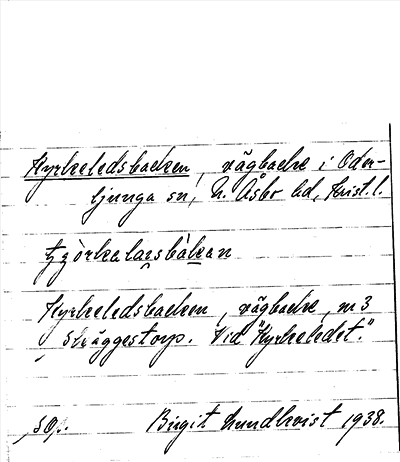 Kyrkeledsbacken, vägbacke i Oder-
ljunga sn, N. Åsbo hd, Krist. l.
Kyrkeledsbacken, vägbacke, m 3
Skäggestorp. Vid "Kyrkeledet."
Birgit Lundkvist 1938.